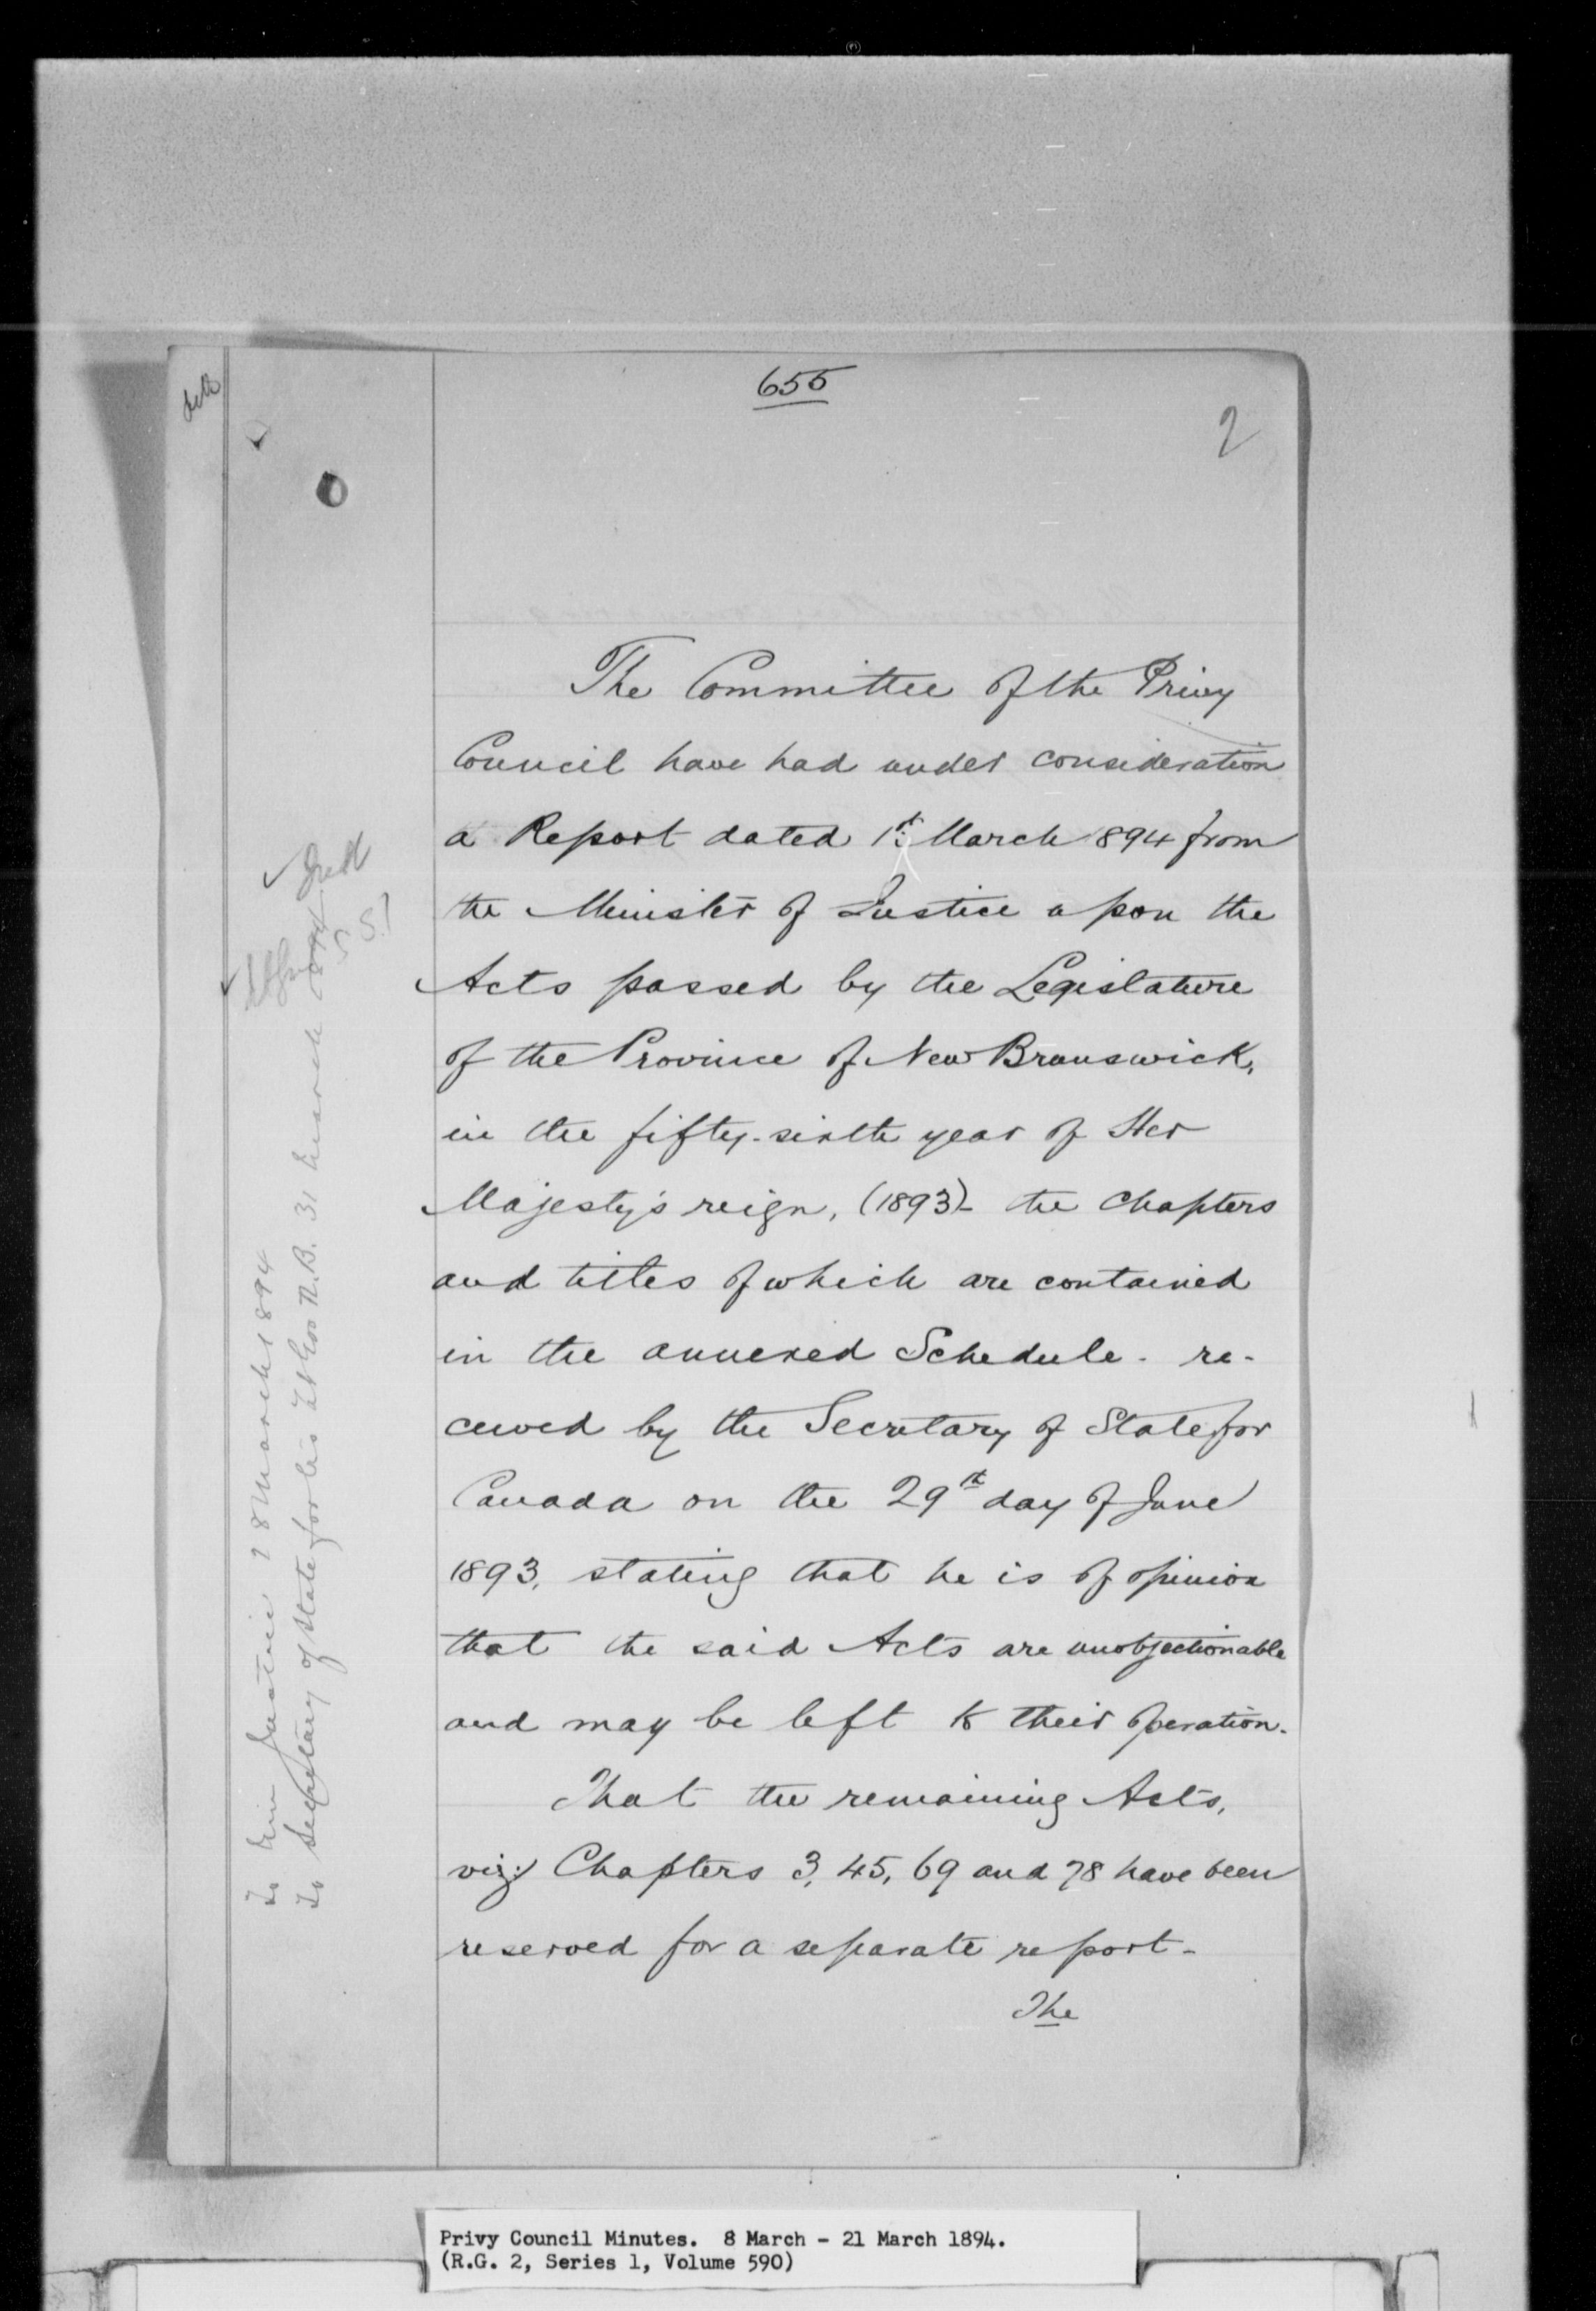 655
2
The Committee of the Privy
Council have had under consideration
a Report dated 1st March 1894 from
the Minister of Justice upon the
Acts passed by the Legislature
of the Province of New Brunswick,
in the fifty-sixth year of Her
Majesty's reign, (1893)- the chapters
and titles of which are contained
in the annexed Schedule - re-
ceived by the Secretary of State for
Canada on the 29th day of June
1893, stating that he is of opinion
that the said Acts are unobjectionable
and may be left to their operation.
That the remaining Acts,
viz: Chapters 3, 45, 69 and 78 have been
reserved for a separate report-
The
To Min Justice 28 March 1894
To Secretary of State for his Lt Gov N.B. 31 March 1894
Privy Council Minutes. 8 March - 21 March 1894.
(R.G. 2, Series 1, Volume 590)